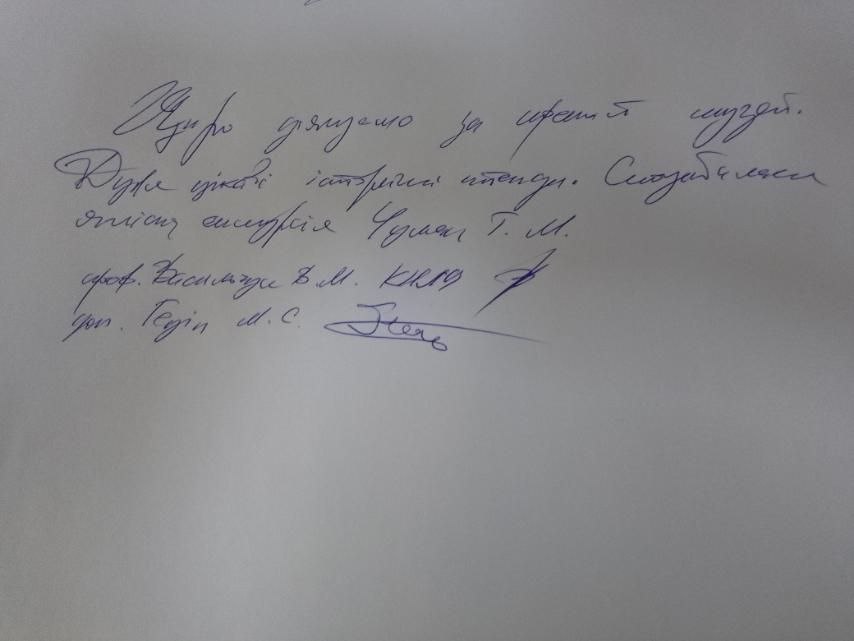 Щиро дякуємо за музей.
Дуже цікаві історичні стенди. Сподобалася
якісна екскурсія Чумак Т. М.
проф. Васильчук В. М.
доц. Гедін М. С.